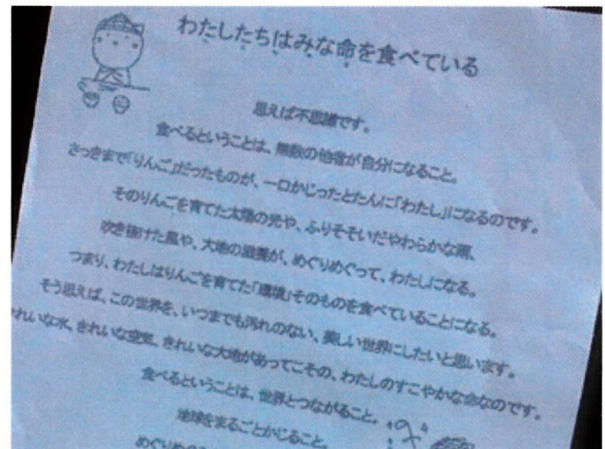 わたしたちはみな命を食べている
思えば不思議です。
食べるということは、無数の他者が自分になること。
さっきまで「りんご」だったものが、一口かじったとたんに「わたし」になるのです。
そのりんごを育てた太陽の光や、ふりそそいだやわらかな雨、
吹き抜けた風や、大地の滋養が、めぐりめぐって、わたしになる。
つまり、わたしはりんごを育てた「環境」そのものを食べていることになる。
そう思えば、この世界を、いつまでも汚れのない、美しい世界にしたいと思います。
れいな水、きれいな空気、きれいな大地があってこその、わたしのすこやかな命なのです。
食べるということは、世界とつながること。
地球をまるごとかじること。
めぐりめ